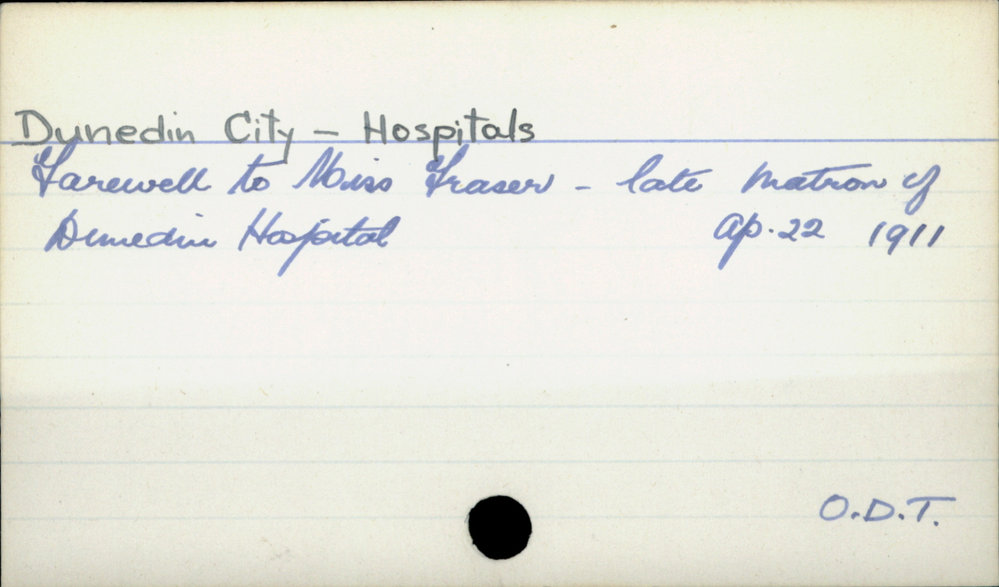 Dunedin City - Hospitals
Farewell to Miss Fraser - late Matron of
Dunedin Hospital Ap. 22 1911
O.D.T.